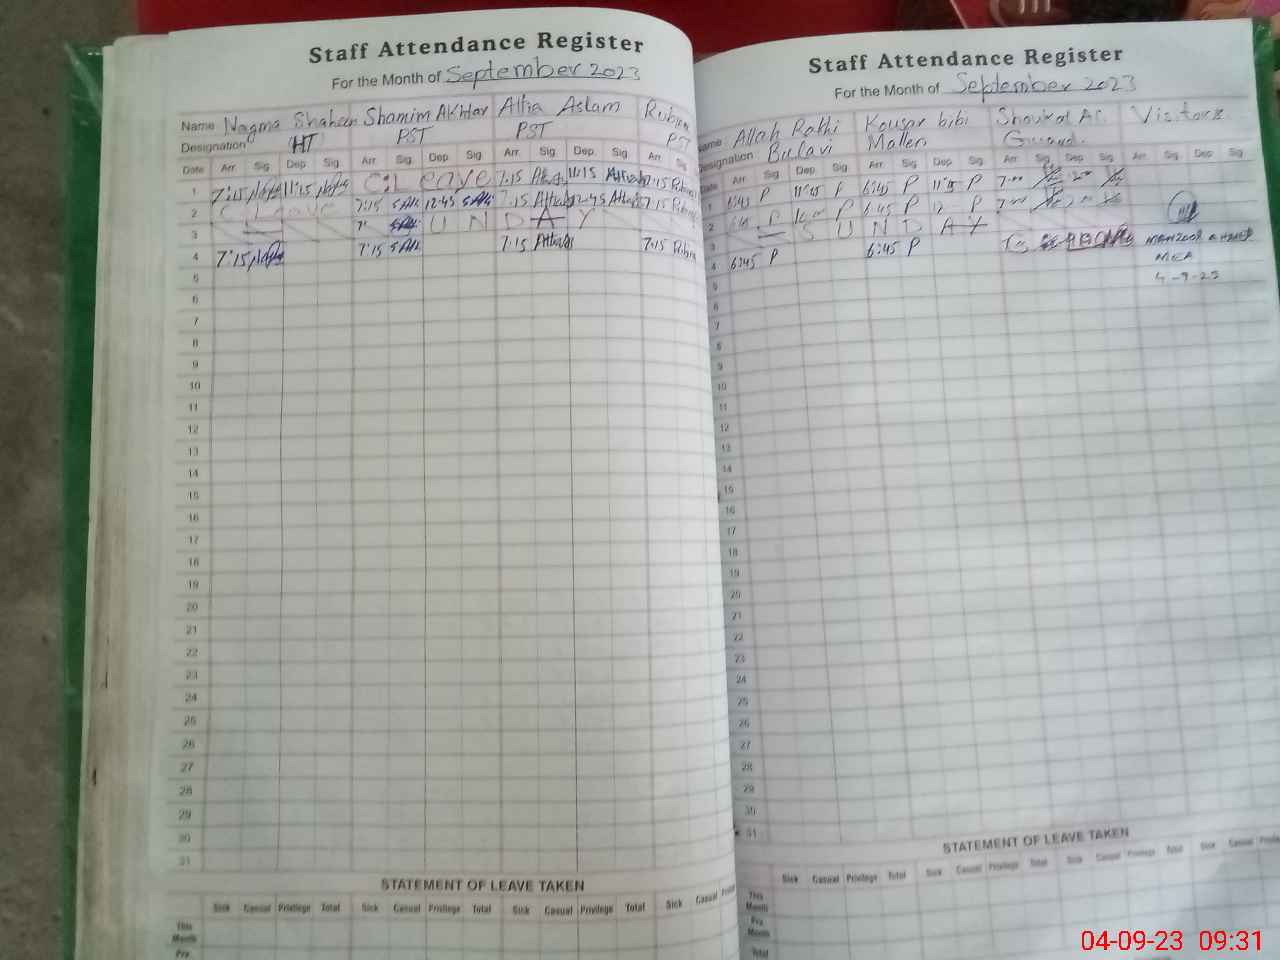 Staff Attendance Register
For the Month of September 2023
Name Nagma Shaheen Shamim AKHtar Attia Aslam
Designation HT PST PST PST
Date Arr. Sig Dep Sig Arr Sig Dep Sig Arr. Sig Dep. Sig Arr Sig
1 7:15 11:15 C:Leave 7.15 11:15 7:15
2 C Leave 7:15 12:45 7.15 12:45 7:15
3 S U N D A Y
4 7:15 7:15 7:15 7:15
5
6
7
8
9
10
11
12
13
14
15
16
17
18
19
20
21
22
23
24
25
26
27
28
29
30
31
STATEMENT OF LEAVE TAKEN
Sick Casual Privilege Total Sick Casual Privilege Total Sick Casual Privilege Total Sick Casual
This Month
Pre
Staff Attendance Register
For the Month of September 2023
Name Allah Rakhi Kousar bibi Visitors
Designation Malien Guard.
Date Arr Sig Dep Sig Arr Sig Dep Sig Arr Sig Dep Sig Arr Sig Dep Sig
1 6:45 P 11:45 P 6:45 P 11:45 P 7:00
2 P P 6:45 P 12 P 7:00
3 S U N D A Y
4 6:45 P 6:45 P
MEA
4-9-23
5
6
7
8
9
10
11
12
13
14
15
16
17
18
19
20
21
22
23
24
25
26
27
28
29
30
31
STATEMENT OF LEAVE TAKEN
Sick Casual Privilege Total Sick Casual Privilege Total Sick Casual Privilege Total Sick Casual
This Month
Pre Month
Total
04-09-23 09:31